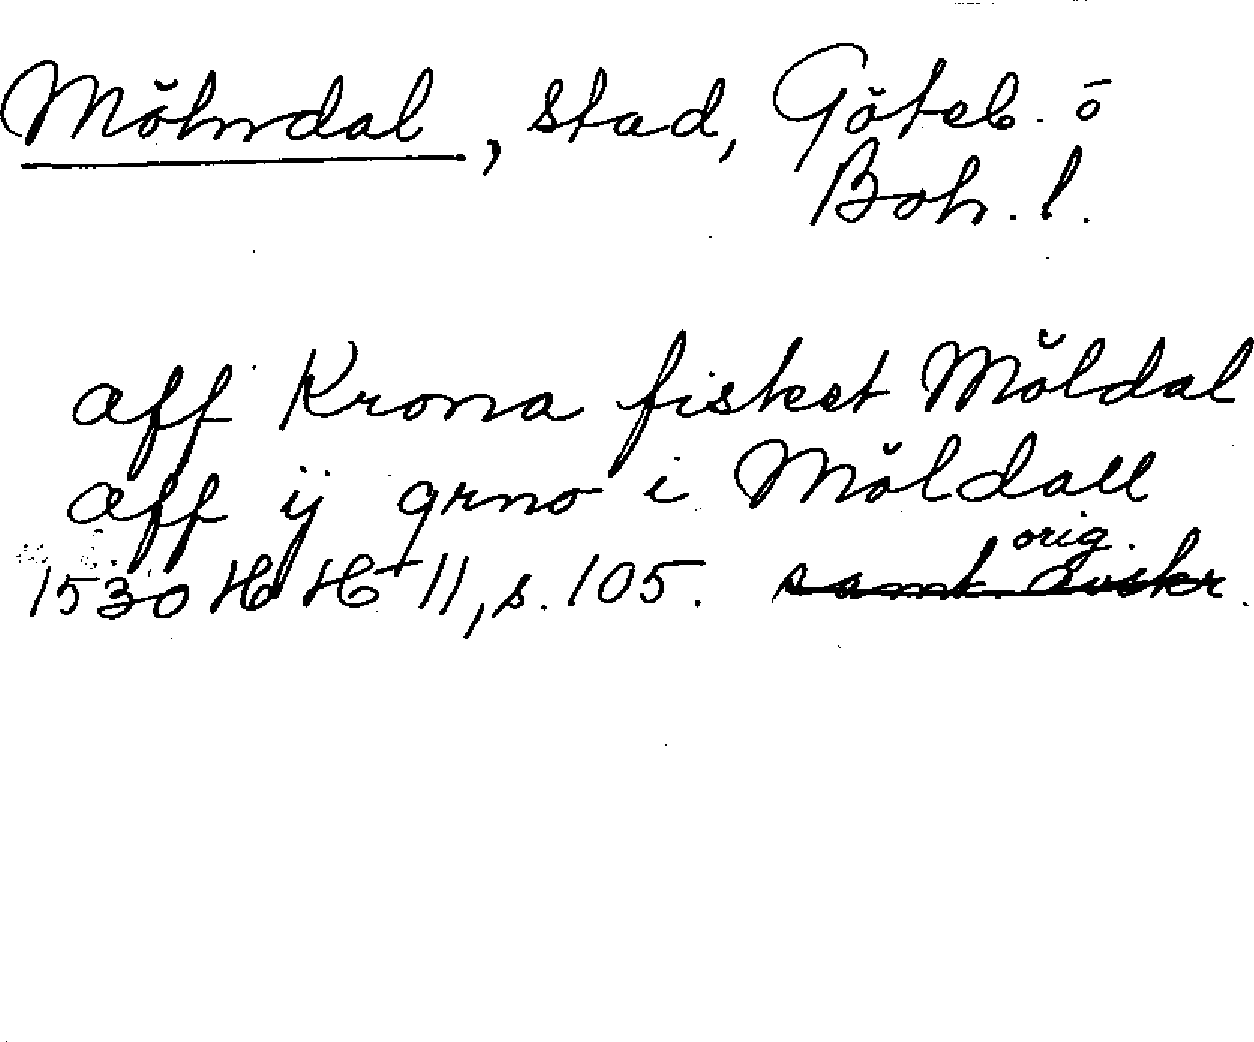 Mölndal, stad, Göteb. o
Boh. l.
aff Krona fisket Möldal
aff ij grno i Möldall
orig.
1530 HH 11, s. 105. samt. avskr.